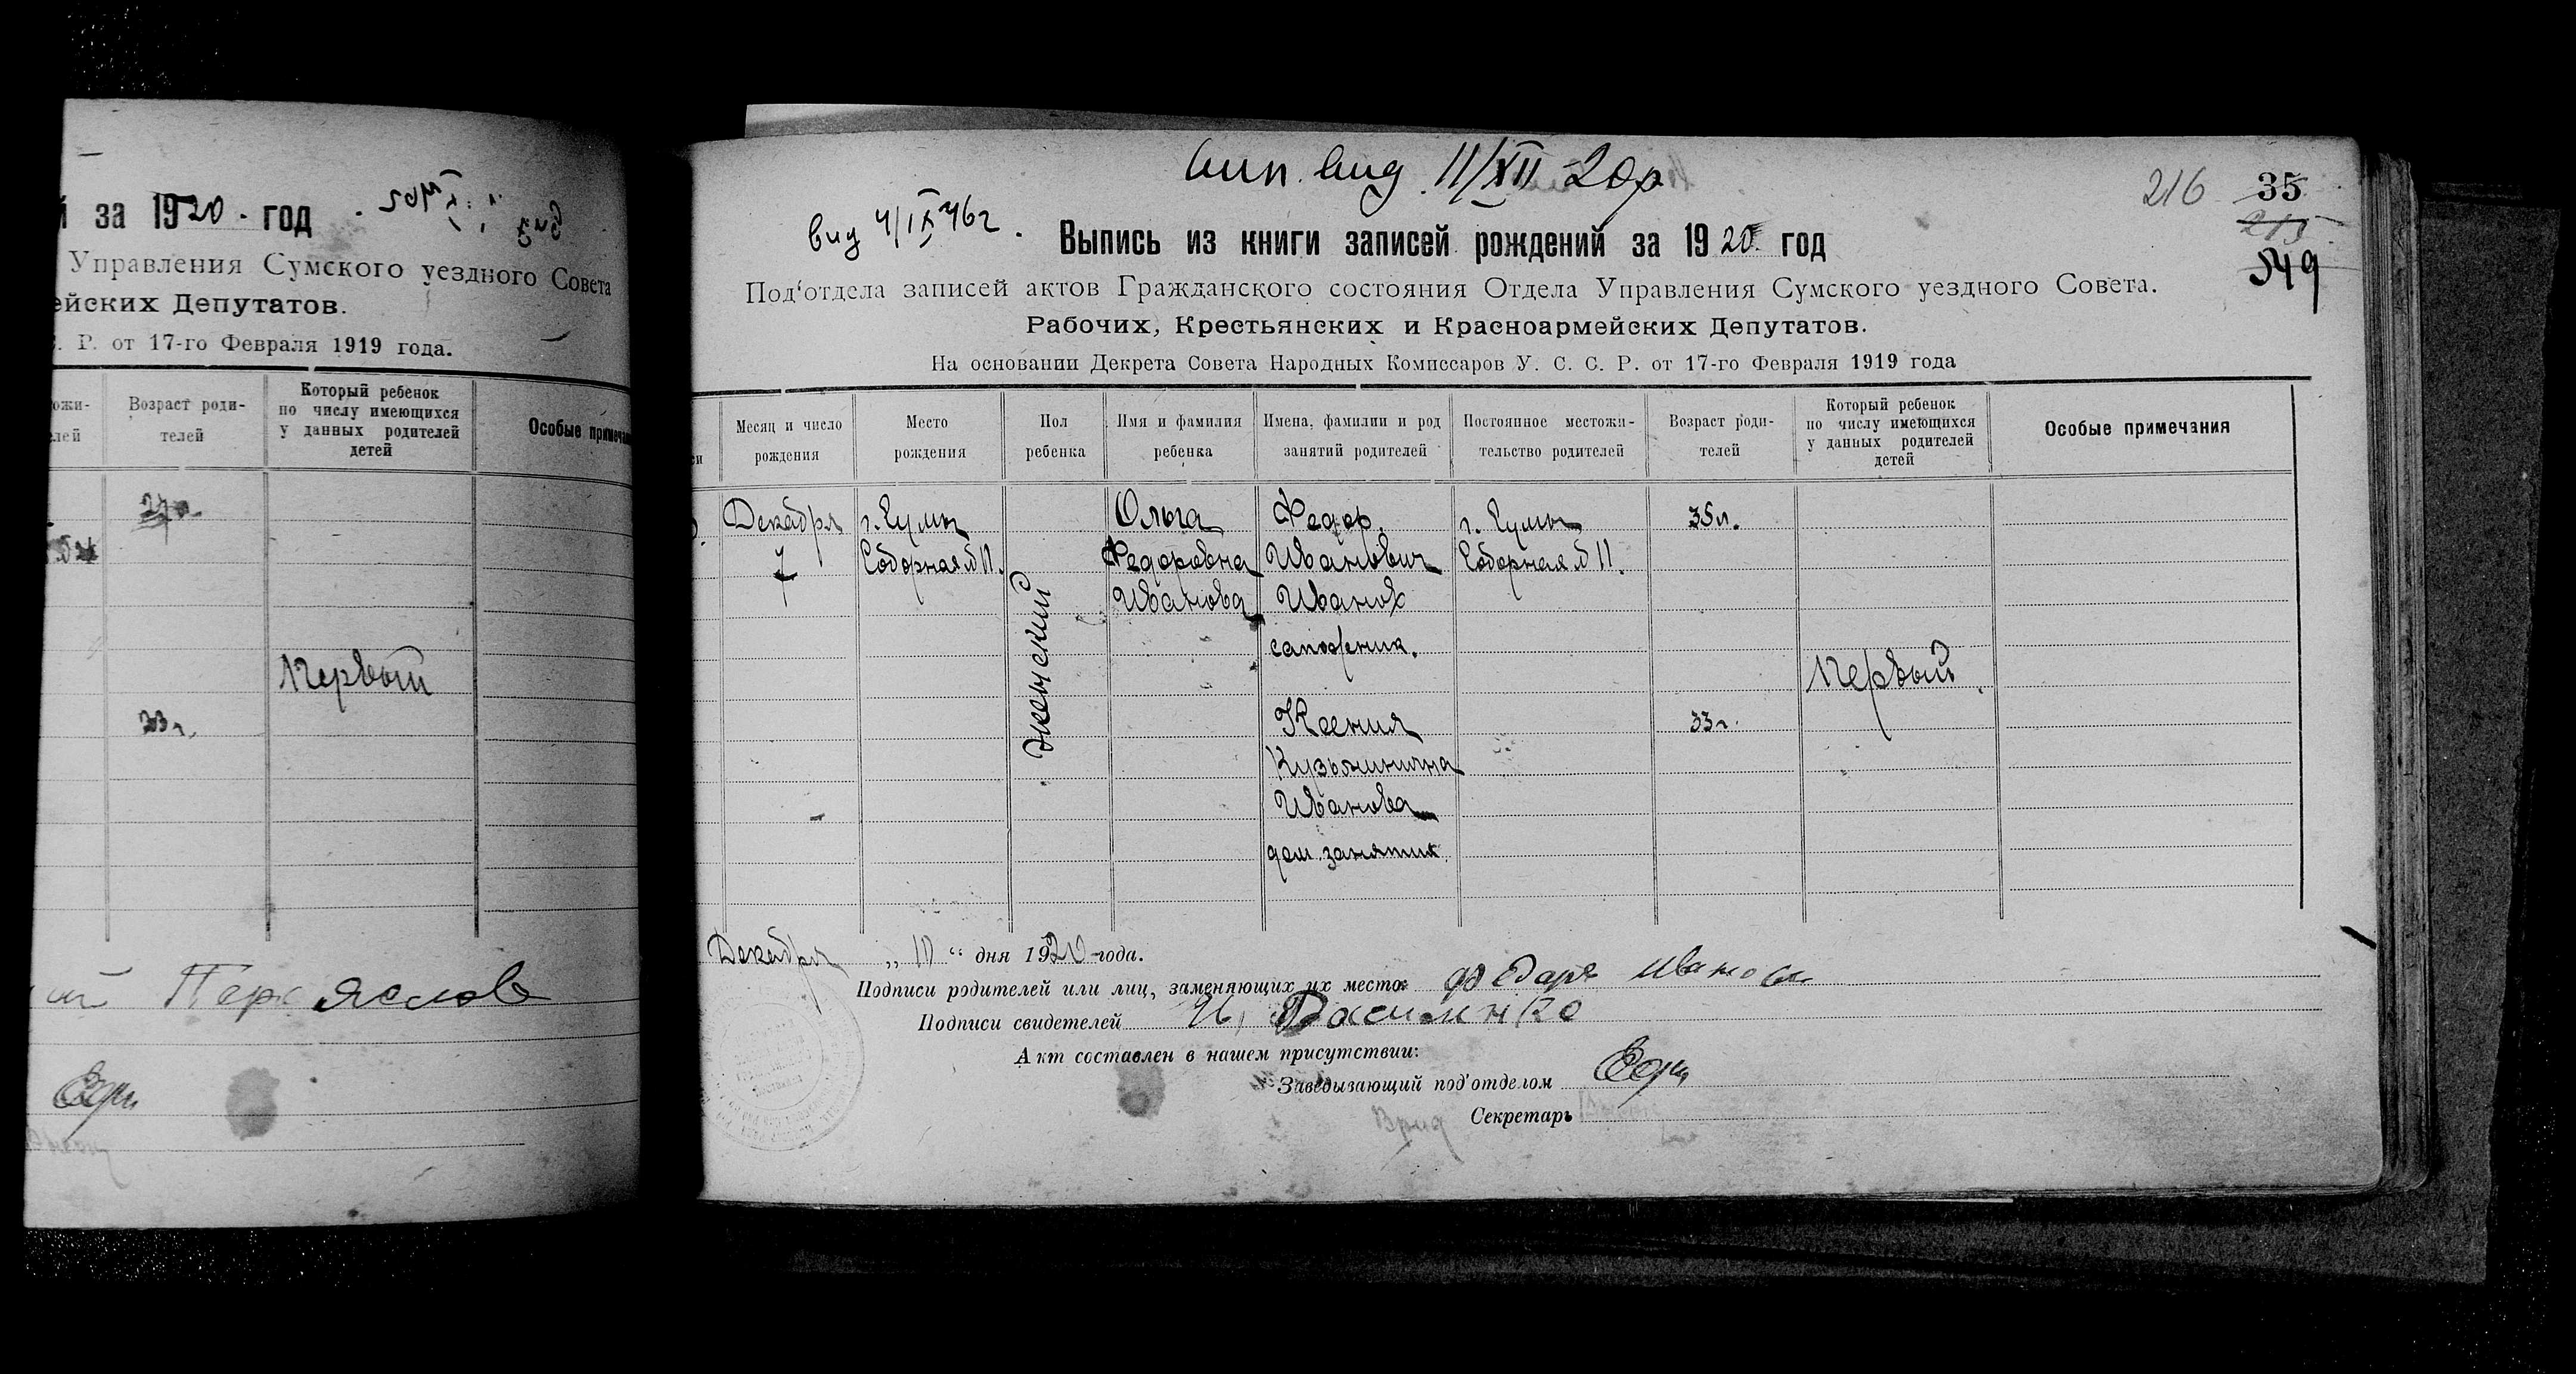 за 1920. год
Управления Сумского уездного Совета
ейских Депутатов.
Р. от 17-го Февраля 1919 года.
ожи-
Возраст роди-
телей
Который ребенок
по числу имеющихся
у данных родителей
детей
Особые примеча
Первый
33 г.
11/XII 20р
вид 4/IX 46г.
216
35
549
Выпись из книги записей рождений за 1920 год
Под'отдела записей актов Гражданского состояния Отдела Управления Сумского уездного Совета.
Рабочих, Крестьянских и Красноармейских Депутатов.
На основании Декрета Совета Народных Комиссаров У. С. С. Р. от 17-го Февраля 1919 года
Месяц и число
рождения
Место
рождения
Пол
ребенка
Имя и фамилия
ребенка
Имена, фамилии и род
занятий родителей
Постоянное местожи-
тельство родителей
Возраст роди-
телей
Который ребенок
по числу имеющихся
у данных родителей
детей
Особые примечания
Декабря
7
г. Сумы
Соборная №11.
женский
Ольга
Федоровна
Иванова
Федор
Иванович
Иванов
сапожник.
Ксения
Кузьминична
Иванова
дом. занятия
г. Сумы
Соборная №11.
35 л.
33 г.
Первый
Декабря „10“ дня 1920 года.
Подписи родителей или лиц, заменяющих их место:
Подписи свидетелей
Акт составлен в нашем присутствии:
Заведывающий под'отделом
Секретарь